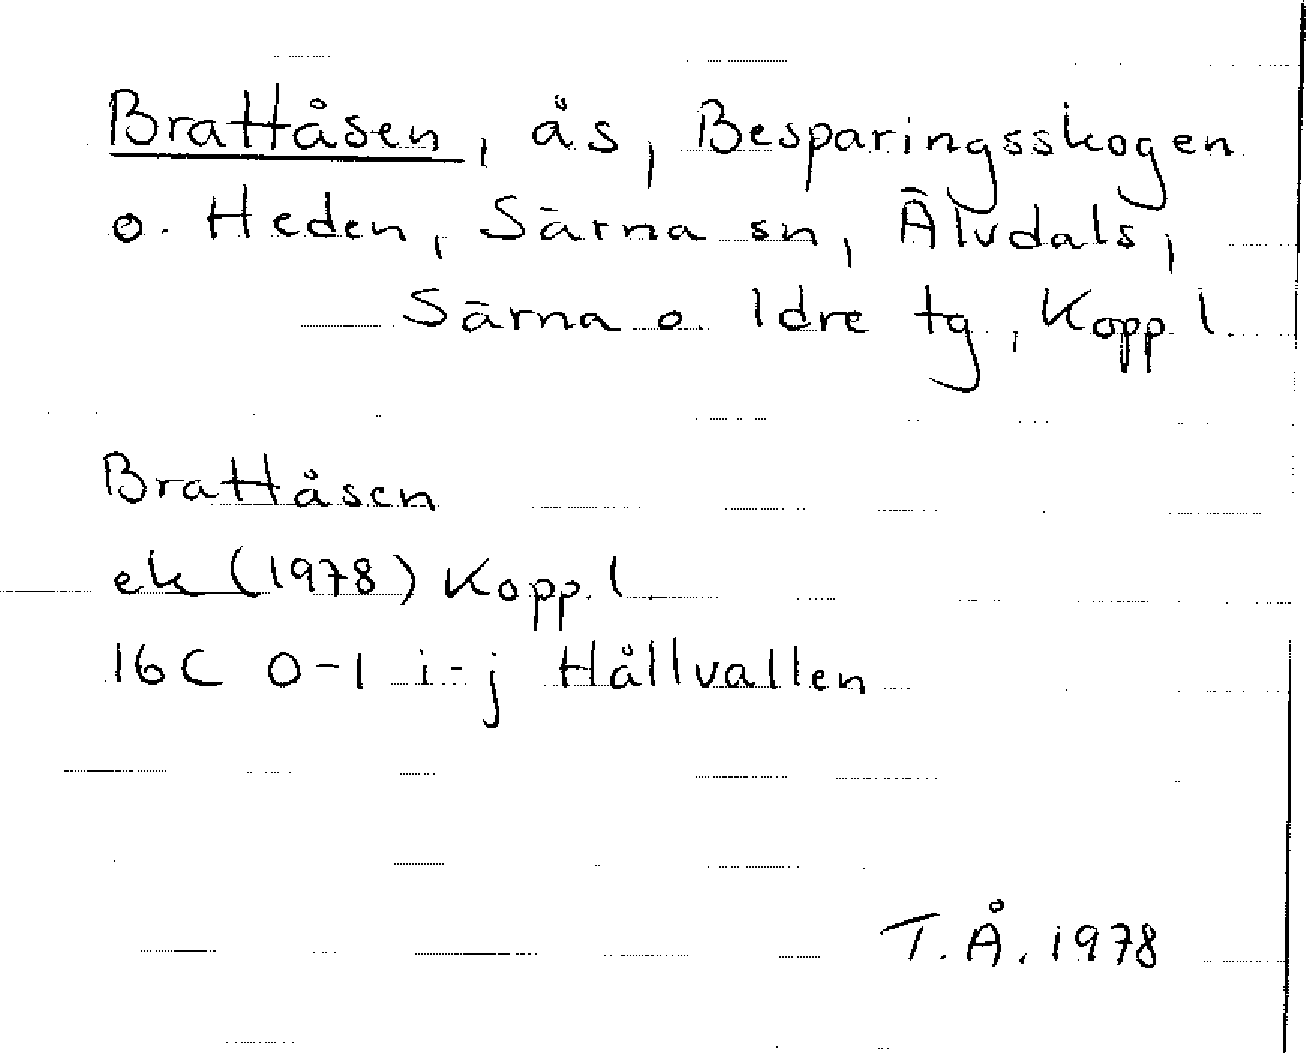 Brattåsen, ås, Besparingsskogen
o. Heden, Särna sn, Älvdals,
Särna o. Idre tg, Kopp. l.
Brattåsen
ek (1978) Kopp. l
16C 0-1 i-j Hållvallen
T.Å. 1978